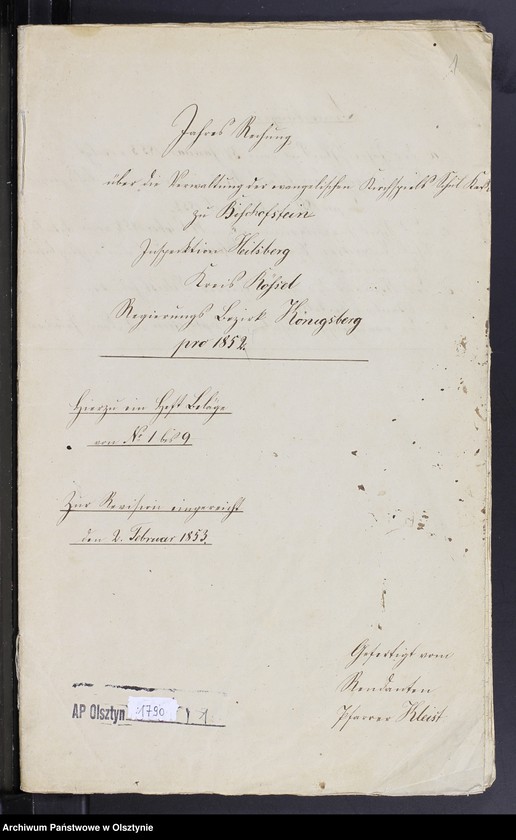 1
Jahres Rechung
über die Verwaltung der evangelischen Kirchspiels Schul Kasse
zu Bischofstein
Inspektion Heilsberg
Kreis Rössel
Regierungs Bezirk Königsberg
pro 1852.
Hierzu ein Heft Beläge
von No 1 bis 9
Zur Revision eingereicht
den 2. Februar 1853.
Gefertigt vom
Rendanten
Pfarrer Kleist
AP Olsztyn 1790 1
Archiwum Państwowe w Olsztynie